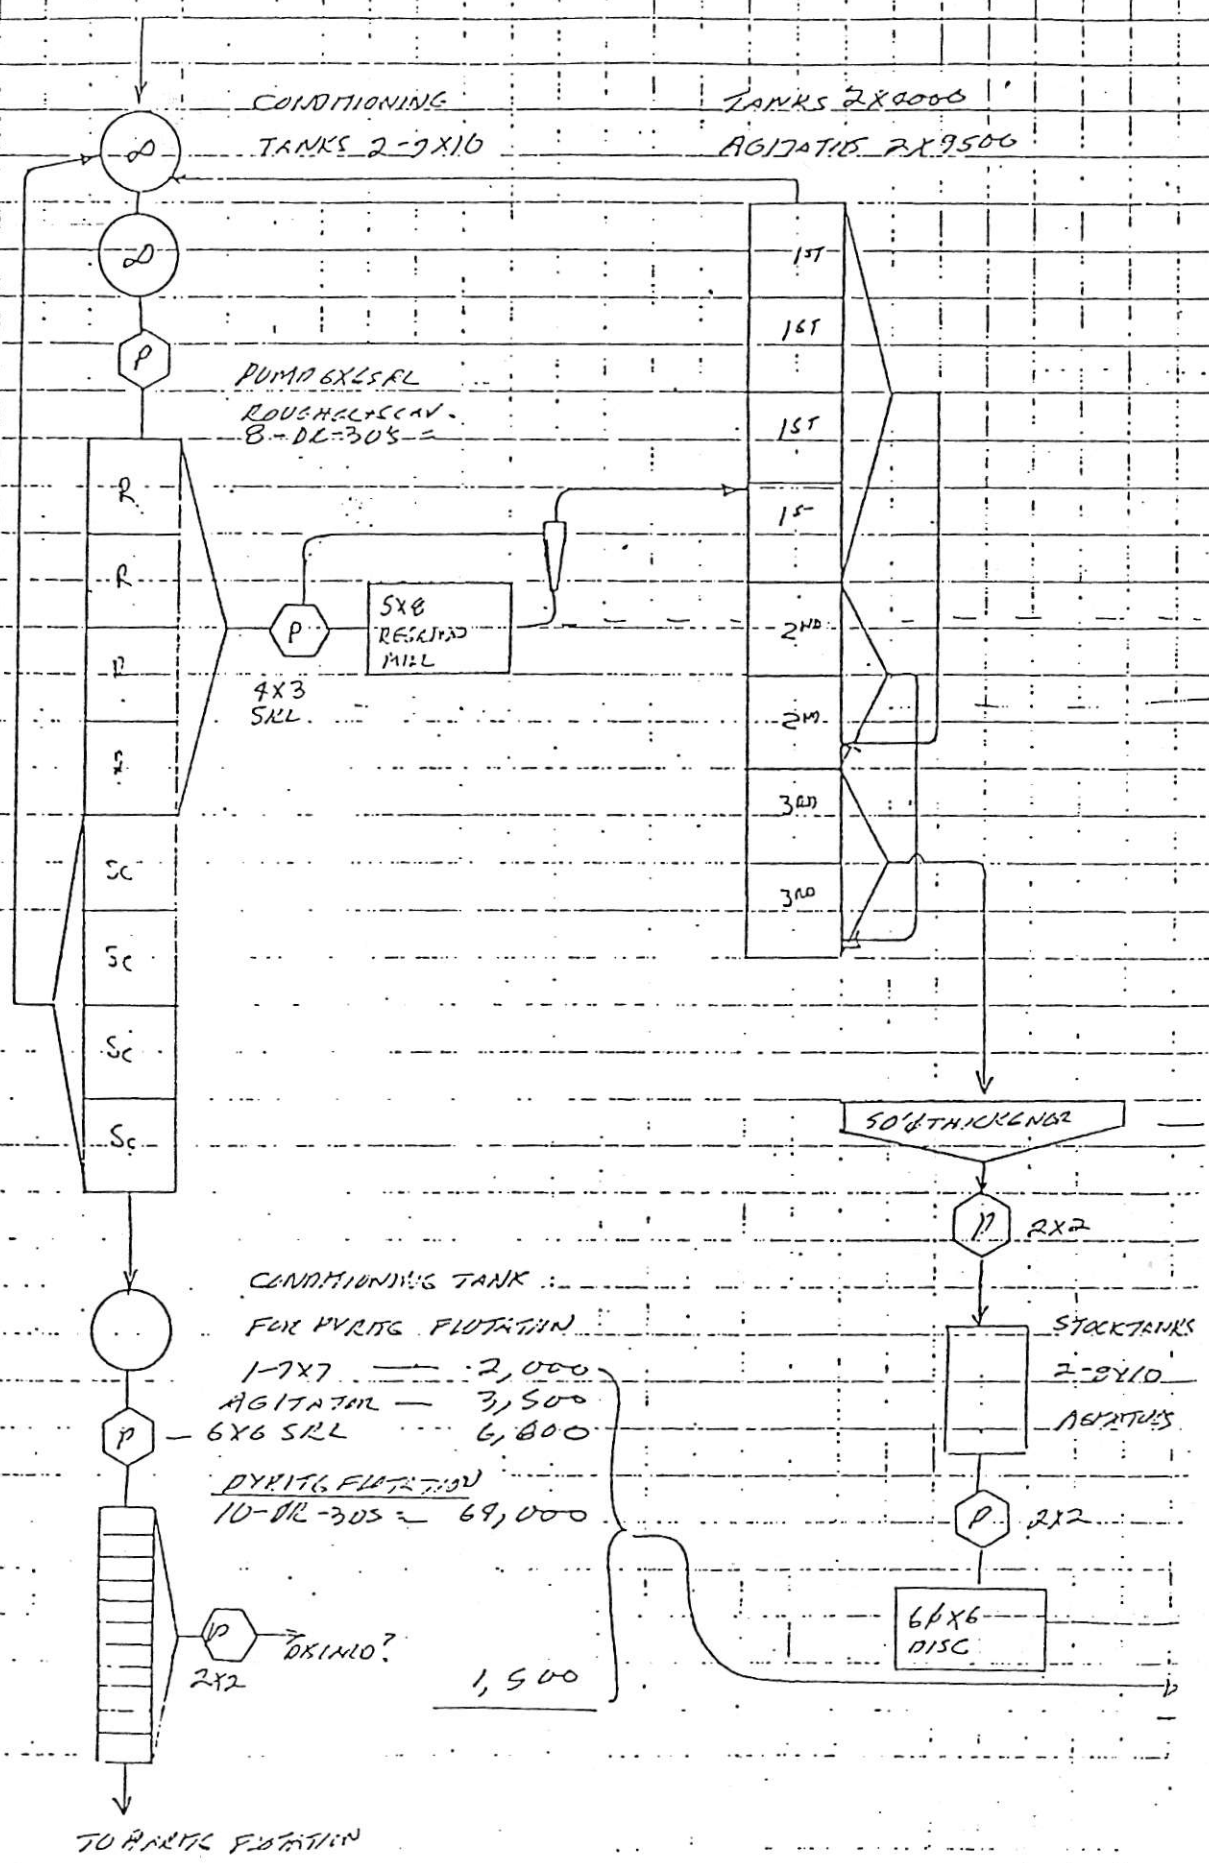 CONDITIONING
TANKS 2-9X10
TANKS 2X4000
AGITATIO 2X9500
∞
∞
P
PUMP 6X6 SRL
ROUGHER+SCAV.
8-DR-30S =
R
R
R
R
Sc
Sc
Sc
Sc
P
4X3
SRL
5X8
REGRIND
MILL
1ST
1ST
1ST
1ST
2ND
2ND
3RD
3RD
50'φ THICKENER
P 2X2
STOCKTANKS
2-8X10
AGITATORS
P 2X2
6φX6
DISC
CONDITIONING TANK
FOR PYRITE FLOTATION
1-7X7 — 2,000
AGITATOR — 3,500
P — 6X6 SRL 6,800
PYRITE FLOTATION
10-DR-30S = 69,000
P
2X2
1,500
TO BARITE FLOTATION